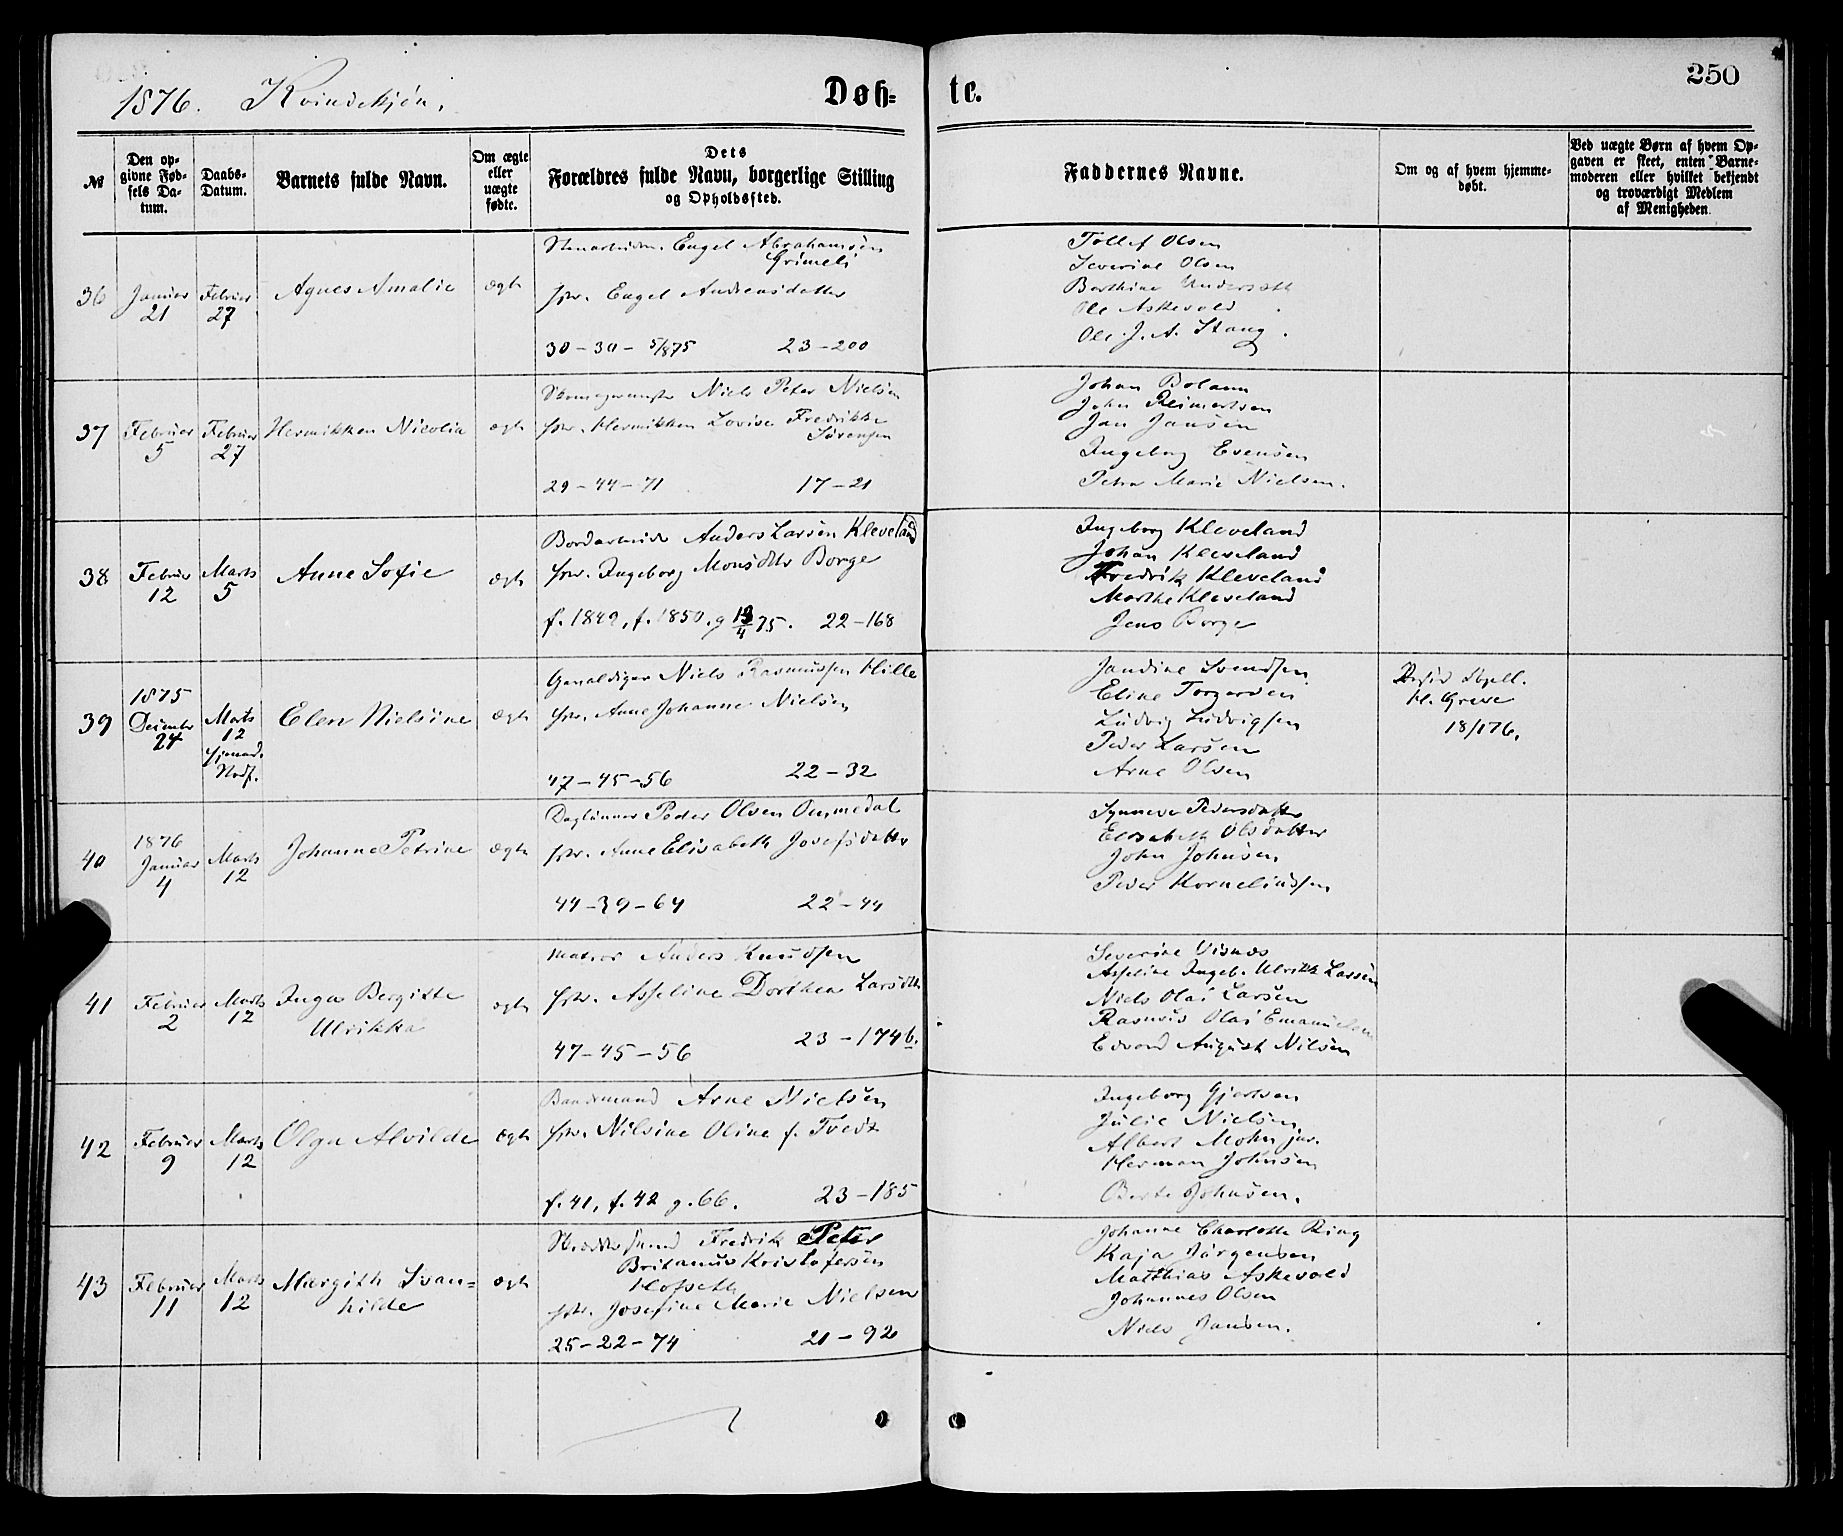 250
1876. Kvindekjøn.
Døb-
te.
№
Den op-
givne Fød-
sels Da-
tum.
Daabs-
Datum.
Barnets fulde Navn.
Om ægte
eller
uægte
fødte.
Dets
Forældres fulde Navn, borgerlige Stilling
og Opholdssted.
Faddernes Navne.
Om og af hvem hjemme-
døbt.
Ved uægte Børn af hvem Op-
gaven er skeet, enten Barne-
moderen eller hvilket bekjendt
og troværdigt Medlem
af Menigheden.
36
Januar
21
Februar
27
Agnes Amalie
ægte
Engel Abrahamsen
Grimeli
Engel Andreasdatter
30-30-5/875 23-200
Tollef Olsen
Severine Olsen
Berthine
Ole Askevold
Ole J. A. Stang.
37
Februar
5
Februar
27
Hermikken Nicolia
ægte
Niels Peter Nielsen
Hermikken Lovise Fredrikke
Sørensen
29-44-71 17-21
Johan Bolann
John Reimertsen
Jan Jansen
Ingeborg Evensen
Petra Marie Nielsen.
38
Februar
12
Marts
5
Anne Sofie
ægte
Bordarbeider Anders Larsen Kleveland
Ingeborg Monsdtr Borge
f. 1849, f. 1850. g 13/4 75. 22-168
Ingeborg Kleveland
Johan Kleveland
Fredrik Kleveland
Marthe Kleveland
Jens Borge
39
1875
December
24
Marts
12
Elen Nielsine
ægte
Niels Rasmussen Hille
Anne Johanne Nielsen
47-45-56 22-32
Jandine Svendsen
Eline Torgersen
Ludvig Ludvigsen
Peder Larsen
Arne Olsen
Kl. Greve
18/176.
40
1876
Januar
4
Marts
12
Johanne Petrine
ægte
Daglønner Peder Olsen Ommedal
Anne Elisabeth Josefsdatter
44-39-64 22-44
Synneve Pedersdatter
Elisabeth Olsdatter
John Johnsen
Peder Korneliussen
41
Februar
2
Marts
12
Inga Bergitte
Ulrikka
ægte
Matros Anders Knudsen
Asseline Dorthea Larsdtr
47-45-56 23-174b.
Severine Visnæs
Asseline Ingeb. Ulrikke Larsen
Niels Olai Larsen
Rasmus Olai Emanuelsen
Edvard August Nilsen
42
Februar
9
Marts
12
Olga Alvilde
ægte
Arne Nielsen
Nilsine Oline f. Tvedt
f. 41, f. 42 g. 66. 23-185
Ingeborg Gjertsen
Julie Nielsen
Albert Mohn jun.
Herman Johnsen
Berte Johnsen.
43
Februar
11
Marts
12
Margith Svan-
hilde
ægte
Fredrik Peter
Britanus Kristofersen
Hofseth
Josefine Marie Nielsen
25-22-74 21-92
Johanne Charlotte Ring
Kaja Jørgensen
Matthias Askevold
Johannes Olsen
Niels Jansen.